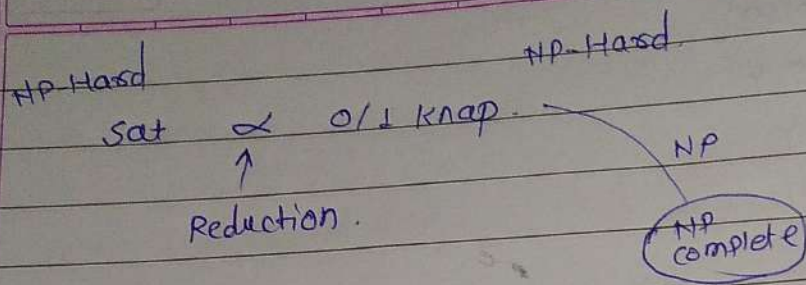 NP-Hard NP-Hard
Sat ∝ 0/1 knap.
↑ NP
Reduction.
NP
complete